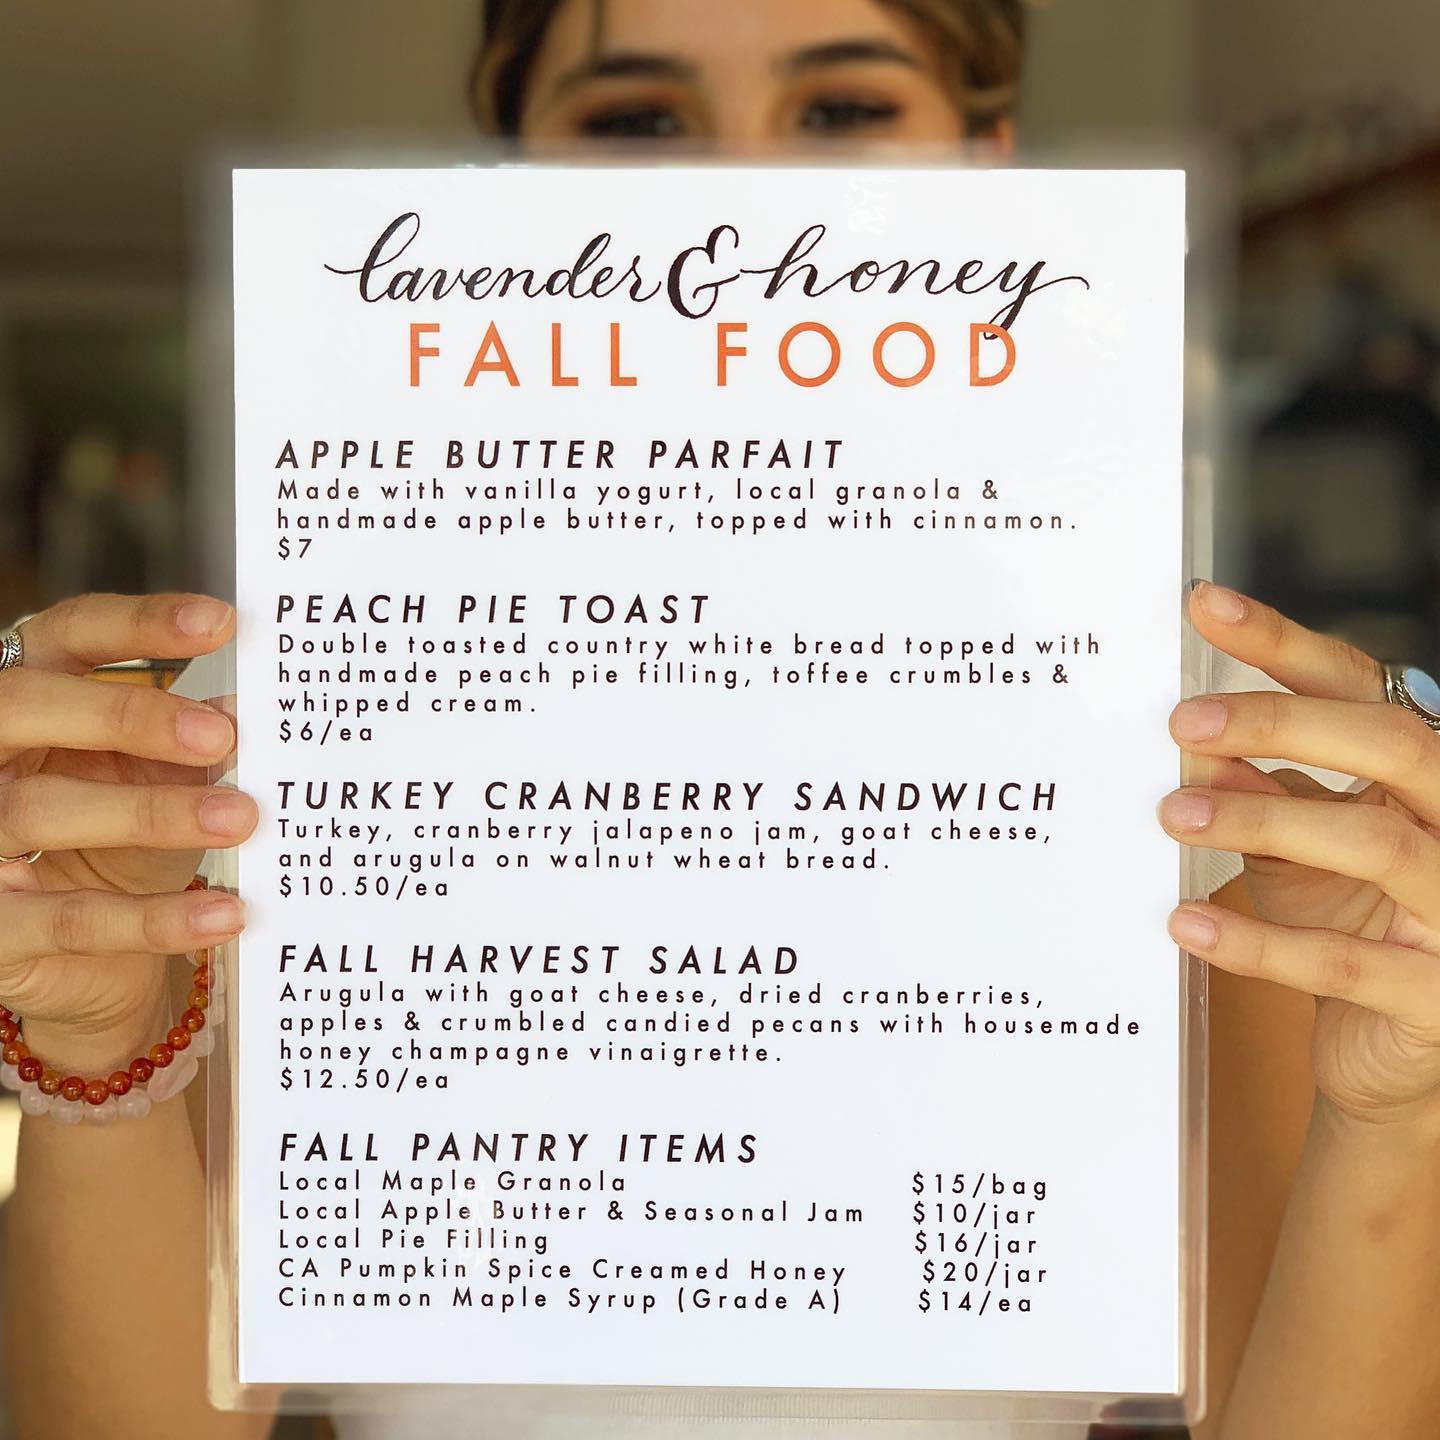 lavender & honey
FALL FOOD
APPLE BUTTER PARFAIT
Made with vanilla yogurt, local granola &
handmade apple butter, topped with cinnamon.
$7
PEACH PIE TOAST
Double toasted country white bread topped with
handmade peach pie filling, toffee crumbles &
whipped cream.
$6/ea
TURKEY CRANBERRY SANDWICH
Turkey, cranberry jalapeno jam, goat cheese,
and arugula on walnut wheat bread.
$10.50/ea
FALL HARVEST SALAD
Arugula with goat cheese, dried cranberries,
apples & crumbled candied pecans with housemade
honey champagne vinaigrette.
$12.50/ea
FALL PANTRY ITEMS
Local Maple Granola $15/bag
Local Apple Butter & Seasonal Jam $10/jar
Local Pie Filling $16/jar
CA Pumpkin Spice Creamed Honey $20/jar
Cinnamon Maple Syrup (Grade A) $14/ea